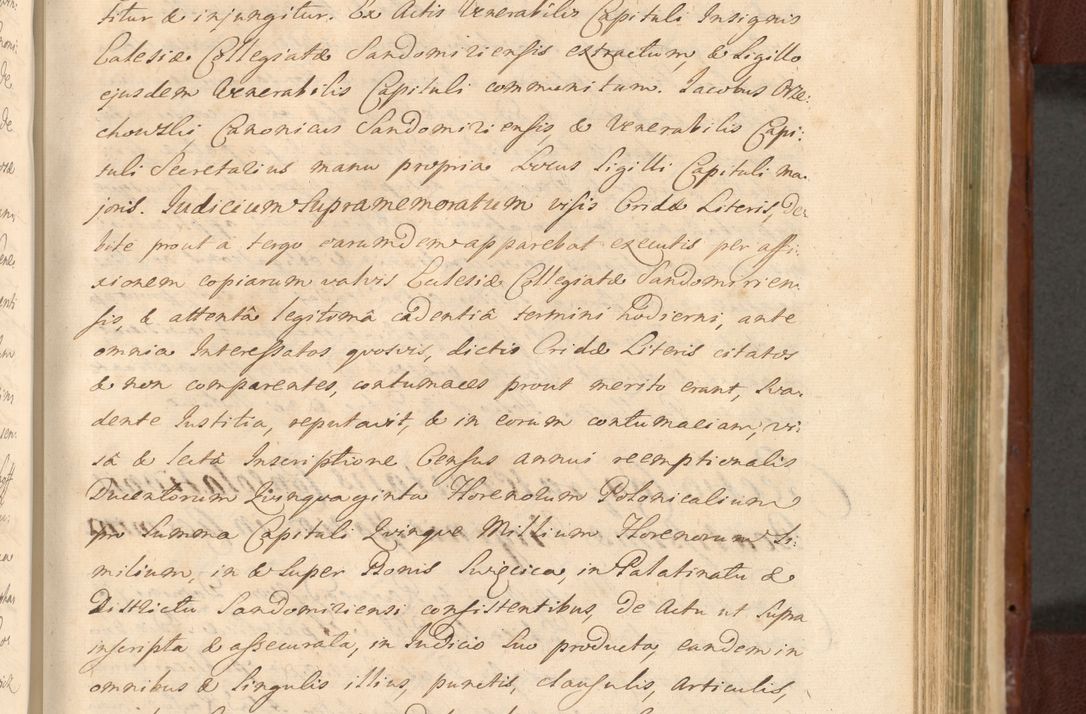 titur & injungitur. Ex Actis Venerabilis Capituli Insignis
Ecclesiæ Collegiatæ Sandomiriensis extractum, & Sigillo
ejusdem Venerabilis Capituli communitum. Jacobus Orze-
chowski Canonicus Sandomiriensis, & Venerabilis Capi-
tuli Secretarius manu propria Locus Sigilli Capituli ma-
joris. Judicium Supramemoratum visis Cridæ Literis, De-
bite prout a tergo earumdem apparebat executis per affi-
xionem copiarum valvis Ecclesiæ Collegiatæ Sandomirien
sis, & attentâ legitimâ cadentiâ termini hodierni, ante
omnia Interessatos quosvis, dictis Cridæ Literis citatos
& non comparentes, contumaces prout merito erant, Sva-
dente Justitia, reputavit, & in eorum contumaciam, vi-
sâ & lectâ Inscriptione Census annui reemptionalis
Ducentorum Quinquaginta Florenorum Polonicalium
pro Summa Capituli Quinque Millium Florenorum Si-
milium, in & Super Bonis Swięcica, in Palatinatu &
Districtu Sandomiriensi consistentibus, De Actu ut Supra
inscripta & assecurata, in Judicio Suo producta, eandem in
omnibus & Singulis illius, punctis, clausulis, articulis,